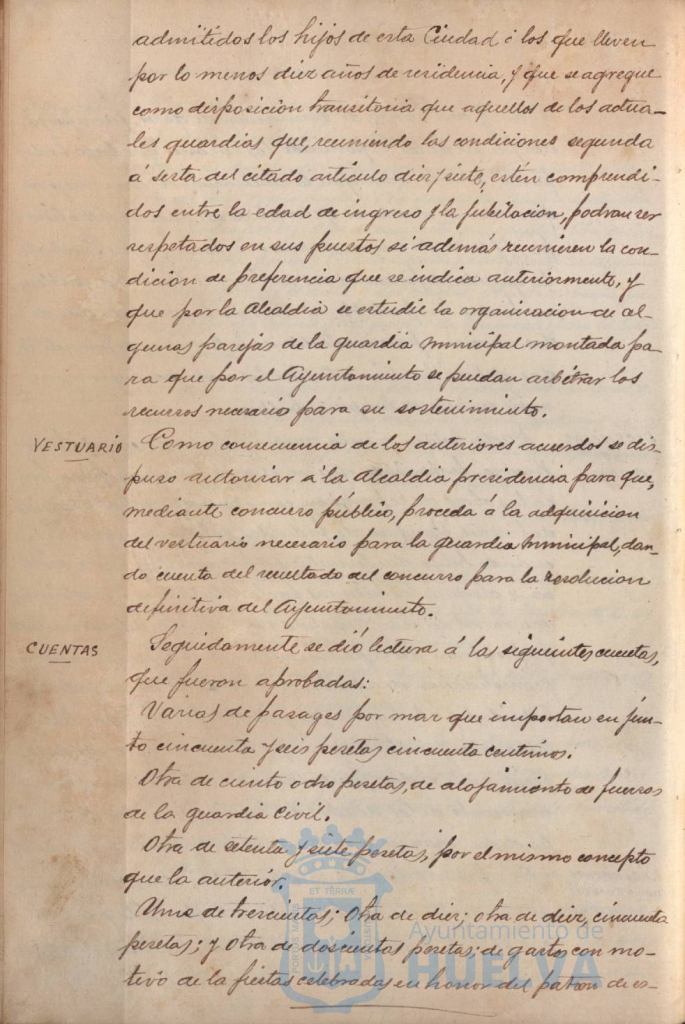 admitidos los hijos de esta Ciudad ó los que lleven
por lo menos diez años de residencia, y que se agregue
como disposicion transitoria que aquellos de los actua-
les guardias que, reuniendo las condiciones segunda
á sexta del citado articulo diez y siete, estén comprendi-
dos entre la edad de ingreso y la jubilacion, podran ser
respetados en sus puestos si además reunieren la con-
dicion de preferencia que se indica anteriormente, y
que por la Alcaldia se estudie la organizacion de al-
gunas parejas de la guardia municipal montada pa-
ra que por el Ayuntamiento se puedan arbitrar los
recursos necesario para su sostenimiento.
VESTUARIO
Como consecuencia de los anteriores acuerdos se dis-
puso autorizar á la Alcaldia presidencia para que,
mediante concurso público, proceda á la adquisicion
del vestuario necesario para la guardia municipal, dan-
do cuenta del resultado del concurso para la resolucion
definitiva del Ayuntamiento.
CUENTAS
Seguidamente se dió lectura á las siguientes cuentas,
que fueron aprobadas:
Varias de pasages por mar que importan en jun-
to cincuenta y seis pesetas cincuenta centimos.
Otra de ciento ocho pesetas, de alojamiento de fuerzas
de la guardia Civil.
Otra de setenta y siete pesetas, por el mismo concepto
que la anterior.
Una de trescientas; otra de diez; otra de diez, cincuenta
pesetas; y otra de doscientas pesetas; de gastos con mo-
tivo de la fiestas celebradas en honor del patron de es-
ET TERRÆ
Ayuntamiento de
HUELVA